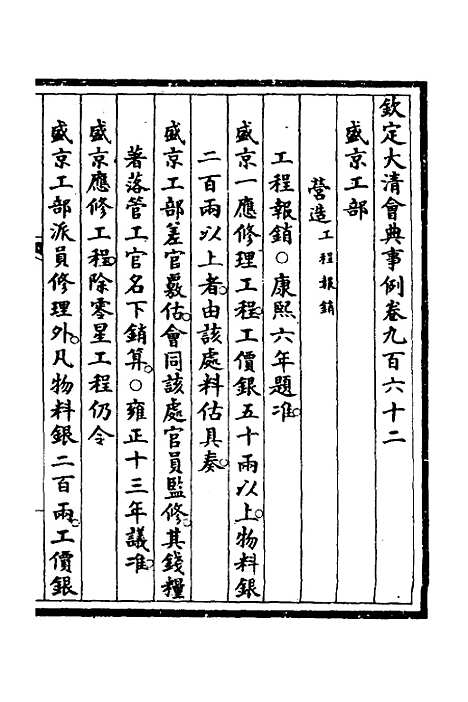 欽定大清會典事例卷九百六十二
盛京工部
營造工程報銷
工程報銷○康熙六年題准。
盛京一應修理工程。工價銀五十兩以上。物料銀
二百兩以上者。由該處料估具奏。
盛京工部差官覈估。會同該處官員監修。其錢糧
著落管工官名下銷算。○雍正十三年議准。
盛京應修工程。除零星工程仍令
盛京工部派員修理外。凡物料銀二百兩。工價銀